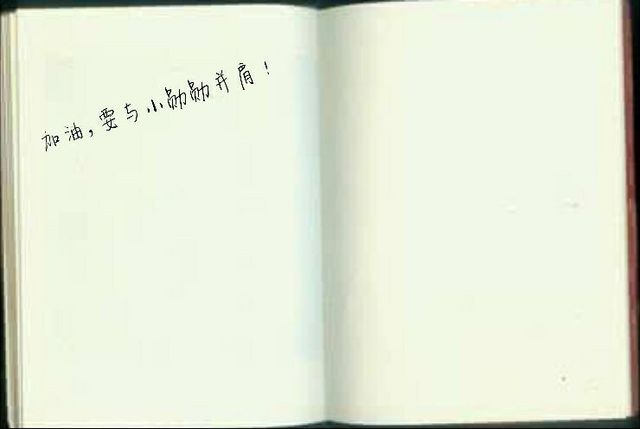 加油,要与小勋勋并肩!